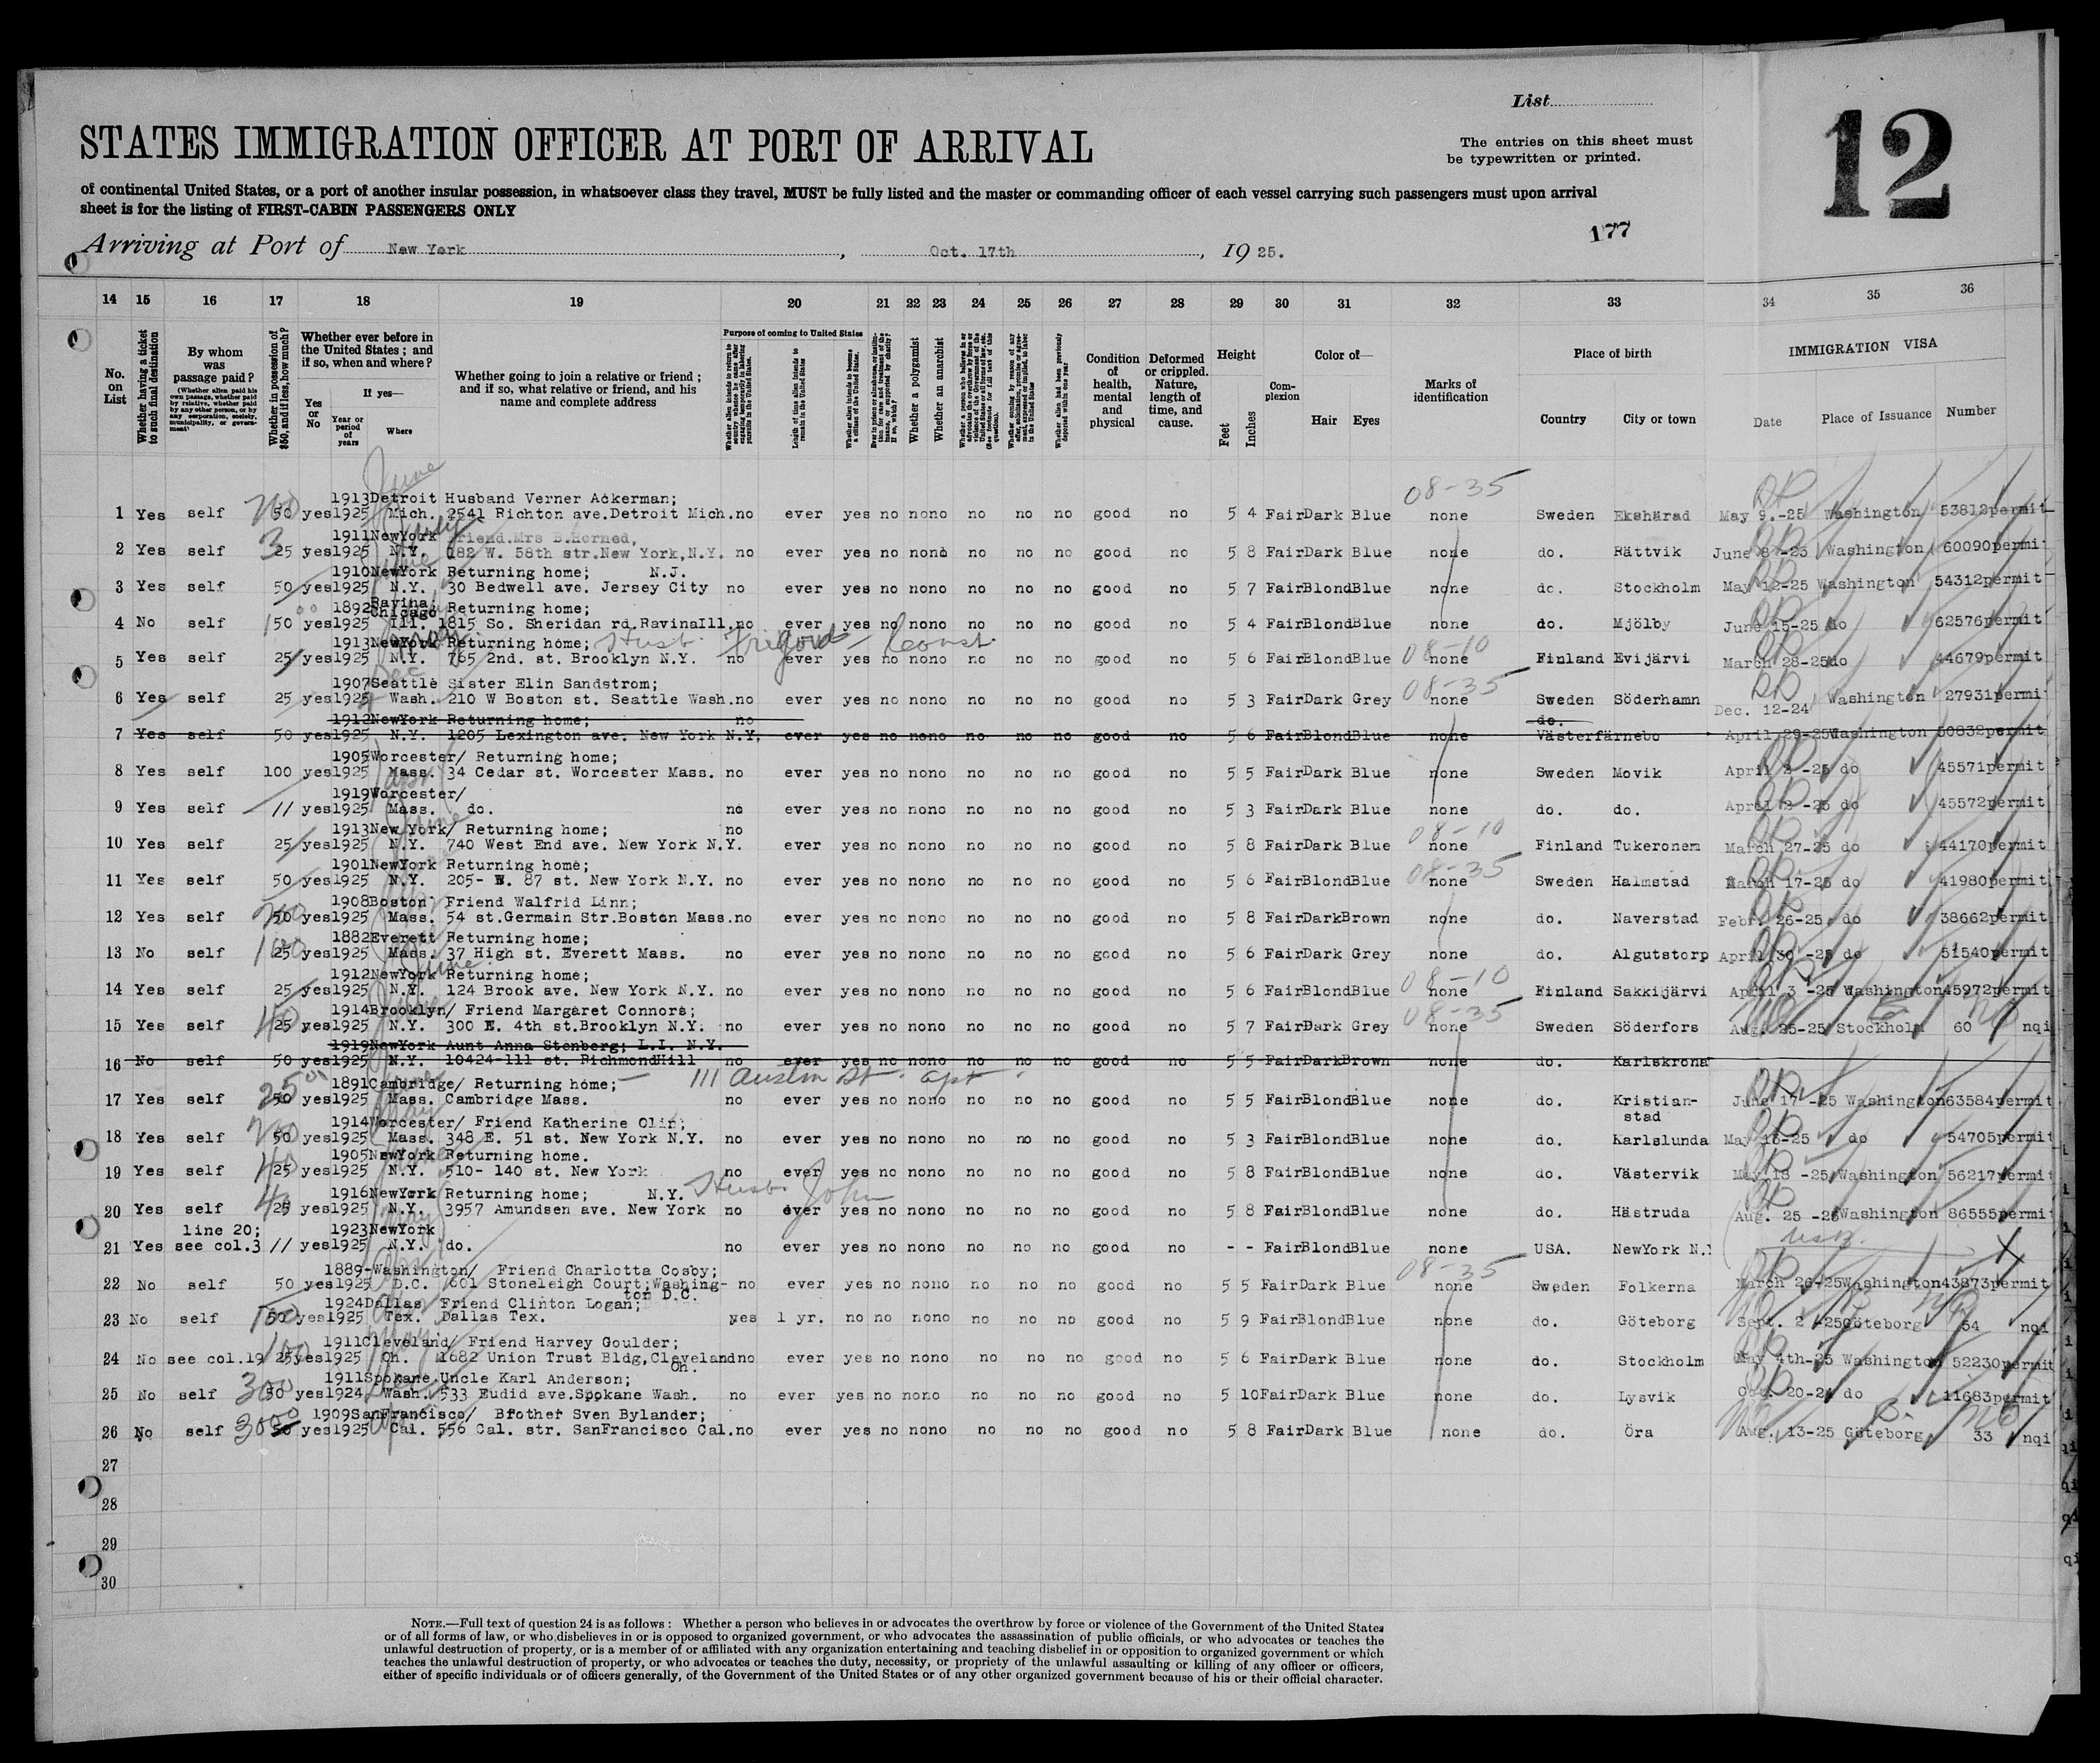 List
STATES IMMIGRATION OFFICER AT PORT OF ARRIVAL
The entries on this sheet must
be typewritten or printed.
12
of continental United States, or a port of another insular possession, in whatsoever class they travel, MUST be fully listed and the master or commanding officer of each vessel carrying such passengers must upon arrival
sheet is for the listing of FIRST-CABIN PASSENGERS ONLY
177
Arriving at Port of New York, Oct. 17th, 19 25.
14 15 16 17 18 19 20 21 22 23 24 25 26 27 28 29 30 31 32 33 34 35 36
No. on List
Whether having a ticket to such final destination
By whom was passage paid?
(Whether alien paid his own passage, whether paid by relative, whether paid by any other person, or by any corporation, society, municipality, or government)
Whether in possession of $50, and if less, how much?
Whether ever before in the United States; and if so, when and where?
Yes or No
If yes—
Year or period of years
Where
Whether going to join a relative or friend; and if so, what relative or friend, and his name and complete address
Purpose of coming to United States
Length of time alien intends to remain in the United States
Whether alien intends to become a citizen of the United States
Whether a polygamist
Whether an anarchist
Condition of health, mental and physical
Deformed or crippled. Nature, length of time, and cause.
Height
Feet Inches
Complexion
Color of—
Hair Eyes
Marks of identification
Place of birth
Country City or town
IMMIGRATION VISA
Date Place of Issuance Number
08-35
1913 Detroit Husband Verner Ackerman;
1 Yes self 50 yes 1925 Mich. 2541 Richton ave. Detroit Mich. no ever yes no no no no no no good no 5 4 Fair Dark Blue none Sweden Ekshärad May 9.-25 Washington 53812 permit
1911 New York Friend. Mrs B. Horned,
2 Yes self 25 yes 1925 N.Y. 182 W. 58th str. New York, N.Y. no ever yes no no no no no no good no 5 8 Fair Dark Blue none do. Rättvik June 8 -25 Washington 60090 permi
1910 New York Returning home; N.J.
3 Yes self 50 yes 1925 N.Y. 30 Bedwell ave. Jersey City no ever yes no no no no no no good no 5 7 Fair Blond Blue none do. Stockholm May 12-25 Washington 54312 permit
1892 Ravina, Chicago Returning home;
4 No self 50 yes 1925 Ill. 1815 So. Sheridan rd. Ravina Ill. no ever yes no no no no no no good no 5 4 Fair Blond Blue none do. Mjölby June 15-25 do 62576 permit
1913 New York Returning home; Husb.
5 Yes self 25 yes 1925 N.Y. 765 2nd. st. Brooklyn N.Y. no ever yes no no no no no no good no 5 6 Fair Blond Blue 08-10 none Finland Evijärvi March 28-25 do 44679 permit
1907 Seattle Sister Elin Sandstrom; 08-35
6 Yes self 25 yes 1925 Wash. 210 W Boston st. Seattle Wash. no ever yes no no no no no no good no 5 3 Fair Dark Grey none Sweden Söderhamn Dec. 12-24 Washington 27931 permi
1912 New York Returning home; no do.
7 Yes self 50 yes 1925 N.Y. 1205 Lexington ave. New York N.Y. ever yes no no no no no no good no 5 6 Fair Blond Blue none Västerfärnebo April 29-25 Washington 50832 permit
1905 Worcester/ Returning home;
8 Yes self 100 yes 1925 Mass. 34 Cedar st. Worcester Mass. no ever yes no no no no no no good no 5 5 Fair Dark Blue none Sweden Movik April 2 -25 do 45571 permit
1919 Worcester/
9 Yes self // yes 1925 Mass. do. no ever yes no no no no no no good no 5 3 Fair Dark Blue none do. do. April 2 -25 do 45572 permit
1913 New York/ Returning home; no 08-10
10 Yes self 25 yes 1925 N.Y. 740 West End ave. New York N.Y. ever yes no no no no no no good no 5 8 Fair Dark Blue none Finland Tukeronem March 27-25 do 44170 permit
1901 New York Returning home; 08-35
11 Yes self 50 yes 1925 N.Y. 205- E. 87 st. New York N.Y. no ever yes no no no no no no good no 5 6 Fair Blond Blue none Sweden Halmstad March 17-25 do 41980 permit
1908 Boston Friend Walfrid Linn;
12 Yes self 50 yes 1925 Mass. 54 st. Germain Str. Boston Mass. no ever yes no no no no no no good no 5 8 Fair Dark Brown none do. Naverstad Febr. 26-25 do 38662 permit
1882 Everett Returning home;
13 No self 25 yes 1925 Mass. 37 High st. Everett Mass. no ever yes no no no no no no good no 5 6 Fair Dark Grey none do. Algutstorp April 30 -25 do 51540 permit
1912 New York Returning home; 08-10
14 Yes self 25 yes 1925 N.Y. 124 Brook ave. New York N.Y. no ever yes no no no no no no good no 5 6 Fair Blond Blue none Finland Sakkijärvi April 3 -25 Washington 45972 permit
1914 Brooklyn/ Friend Margaret Connors; 08-35
15 Yes self 25 yes 1925 N.Y. 300 E. 4th st. Brooklyn N.Y. no ever yes no no no no no no good no 5 7 Fair Dark Grey none Sweden Söderfors Aug. 25-25 Stockholm 60 nqi
1919 New York Aunt Anna Stenberg; L.I. N.Y.
16 No self 50 yes 1925 N.Y. 10424-111 st. Richmond Hill no ever yes no no no no no no good no 5 5 Fair Dark Brown none do. Karlskrona
1891 Cambridge/ Returning home;- 111 Austin St. apt
17 Yes self 50 yes 1925 Mass. Cambridge Mass. no ever yes no no no no no no good no 5 5 Fair Blond Blue none do. Kristian-
stad June 17 -25 Washington 63584 permit
1914 Worcester/ Friend Katherine Olin;
18 Yes self 50 yes 1925 Mass. 348 E. 51 st. New York N.Y. no ever yes no no no no no no good no 5 3 Fair Blond Blue none do. Karlslunda May 16-25 do 54705 permit
1905 New York Returning home.
19 Yes self 25 yes 1925 N.Y. 510- 140 st. New York no ever yes no no no no no no good no 5 8 Fair Blond Blue none do. Västervik May 18 -25 Washington 56217 permi
1916 New York Returning home; N.Y. Husb. John
20 Yes self 25 yes 1925 N.Y. 3957 Amundsen ave. New York no ever yes no no no no no no good no 5 8 Fair Blond Blue none do. Hästruda Aug. 25 -25 Washington 86555 permi
line 20; 1923 New York
21 Yes see col.3 // yes 1925 N.Y. do. no ever yes no no no no no no good no - - Fair Blond Blue none USA. New York N.Y
1889-Washington/ Friend Charlotta Cosby; 08-35
22 No self 50 yes 1925 D.C. 601 Stoneleigh Court; Washing-
ton D.C. no ever yes no no no no no no good no 5 5 Fair Dark Blue none Sweden Folkerna March 26-25 Washington 43873 permit
1924 Dallas Friend Clinton Logan;
23 No self 50 yes 1925 Tex. Dallas Tex. yes 1 yr. no no no no no no no good no 5 9 Fair Blond Blue none do. Göteborg Sept. 2 -25 Göteborg 54 nqi
1911 Cleveland/ Friend Harvey Goulder;
24 No see col.19 25 yes 1925 Oh. 1682 Union Trust Bldg, Cleveland
Oh. no ever yes no no no no no no good no 5 6 Fair Dark Blue none do. Stockholm May 4th-25 Washington 52230 permit
1911 Spokane, Uncle Karl Anderson;
25 No self 300 50 yes 1924 Wash. 533 Eudid ave. Spokane Wash. no ever yes no no no no no no good no 5 10 Fair Dark Blue none do. Lysvik Oct. 20-24 do 11683 permit
1909 San Francisco/ Brother Sven Bylander;
26 No self 3000 50 yes 1925 Cal. 556 Cal. str. San Francisco Cal. no ever yes no no no no no no good no 5 8 Fair Dark Blue none do. Öra Aug. 13-25 Göteborg 33 nqi
27
28
29
30
NOTE.—Full text of question 24 is as follows: Whether a person who believes in or advocates the overthrow by force or violence of the Government of the United States
or of all forms of law, or who disbelieves in or is opposed to organized government, or who advocates the assassination of public officials, or who advocates or teaches the
unlawful destruction of property, or is a member of or affiliated with any organization entertaining and teaching disbelief in or opposition to organized government or which
teaches the unlawful destruction of property, or who advocates or teaches the duty, necessity, or propriety of the unlawful assaulting or killing of any officer or officers,
either of specific individuals or of officers generally, of the Government of the United States or of any other organized government because of his or their official character.